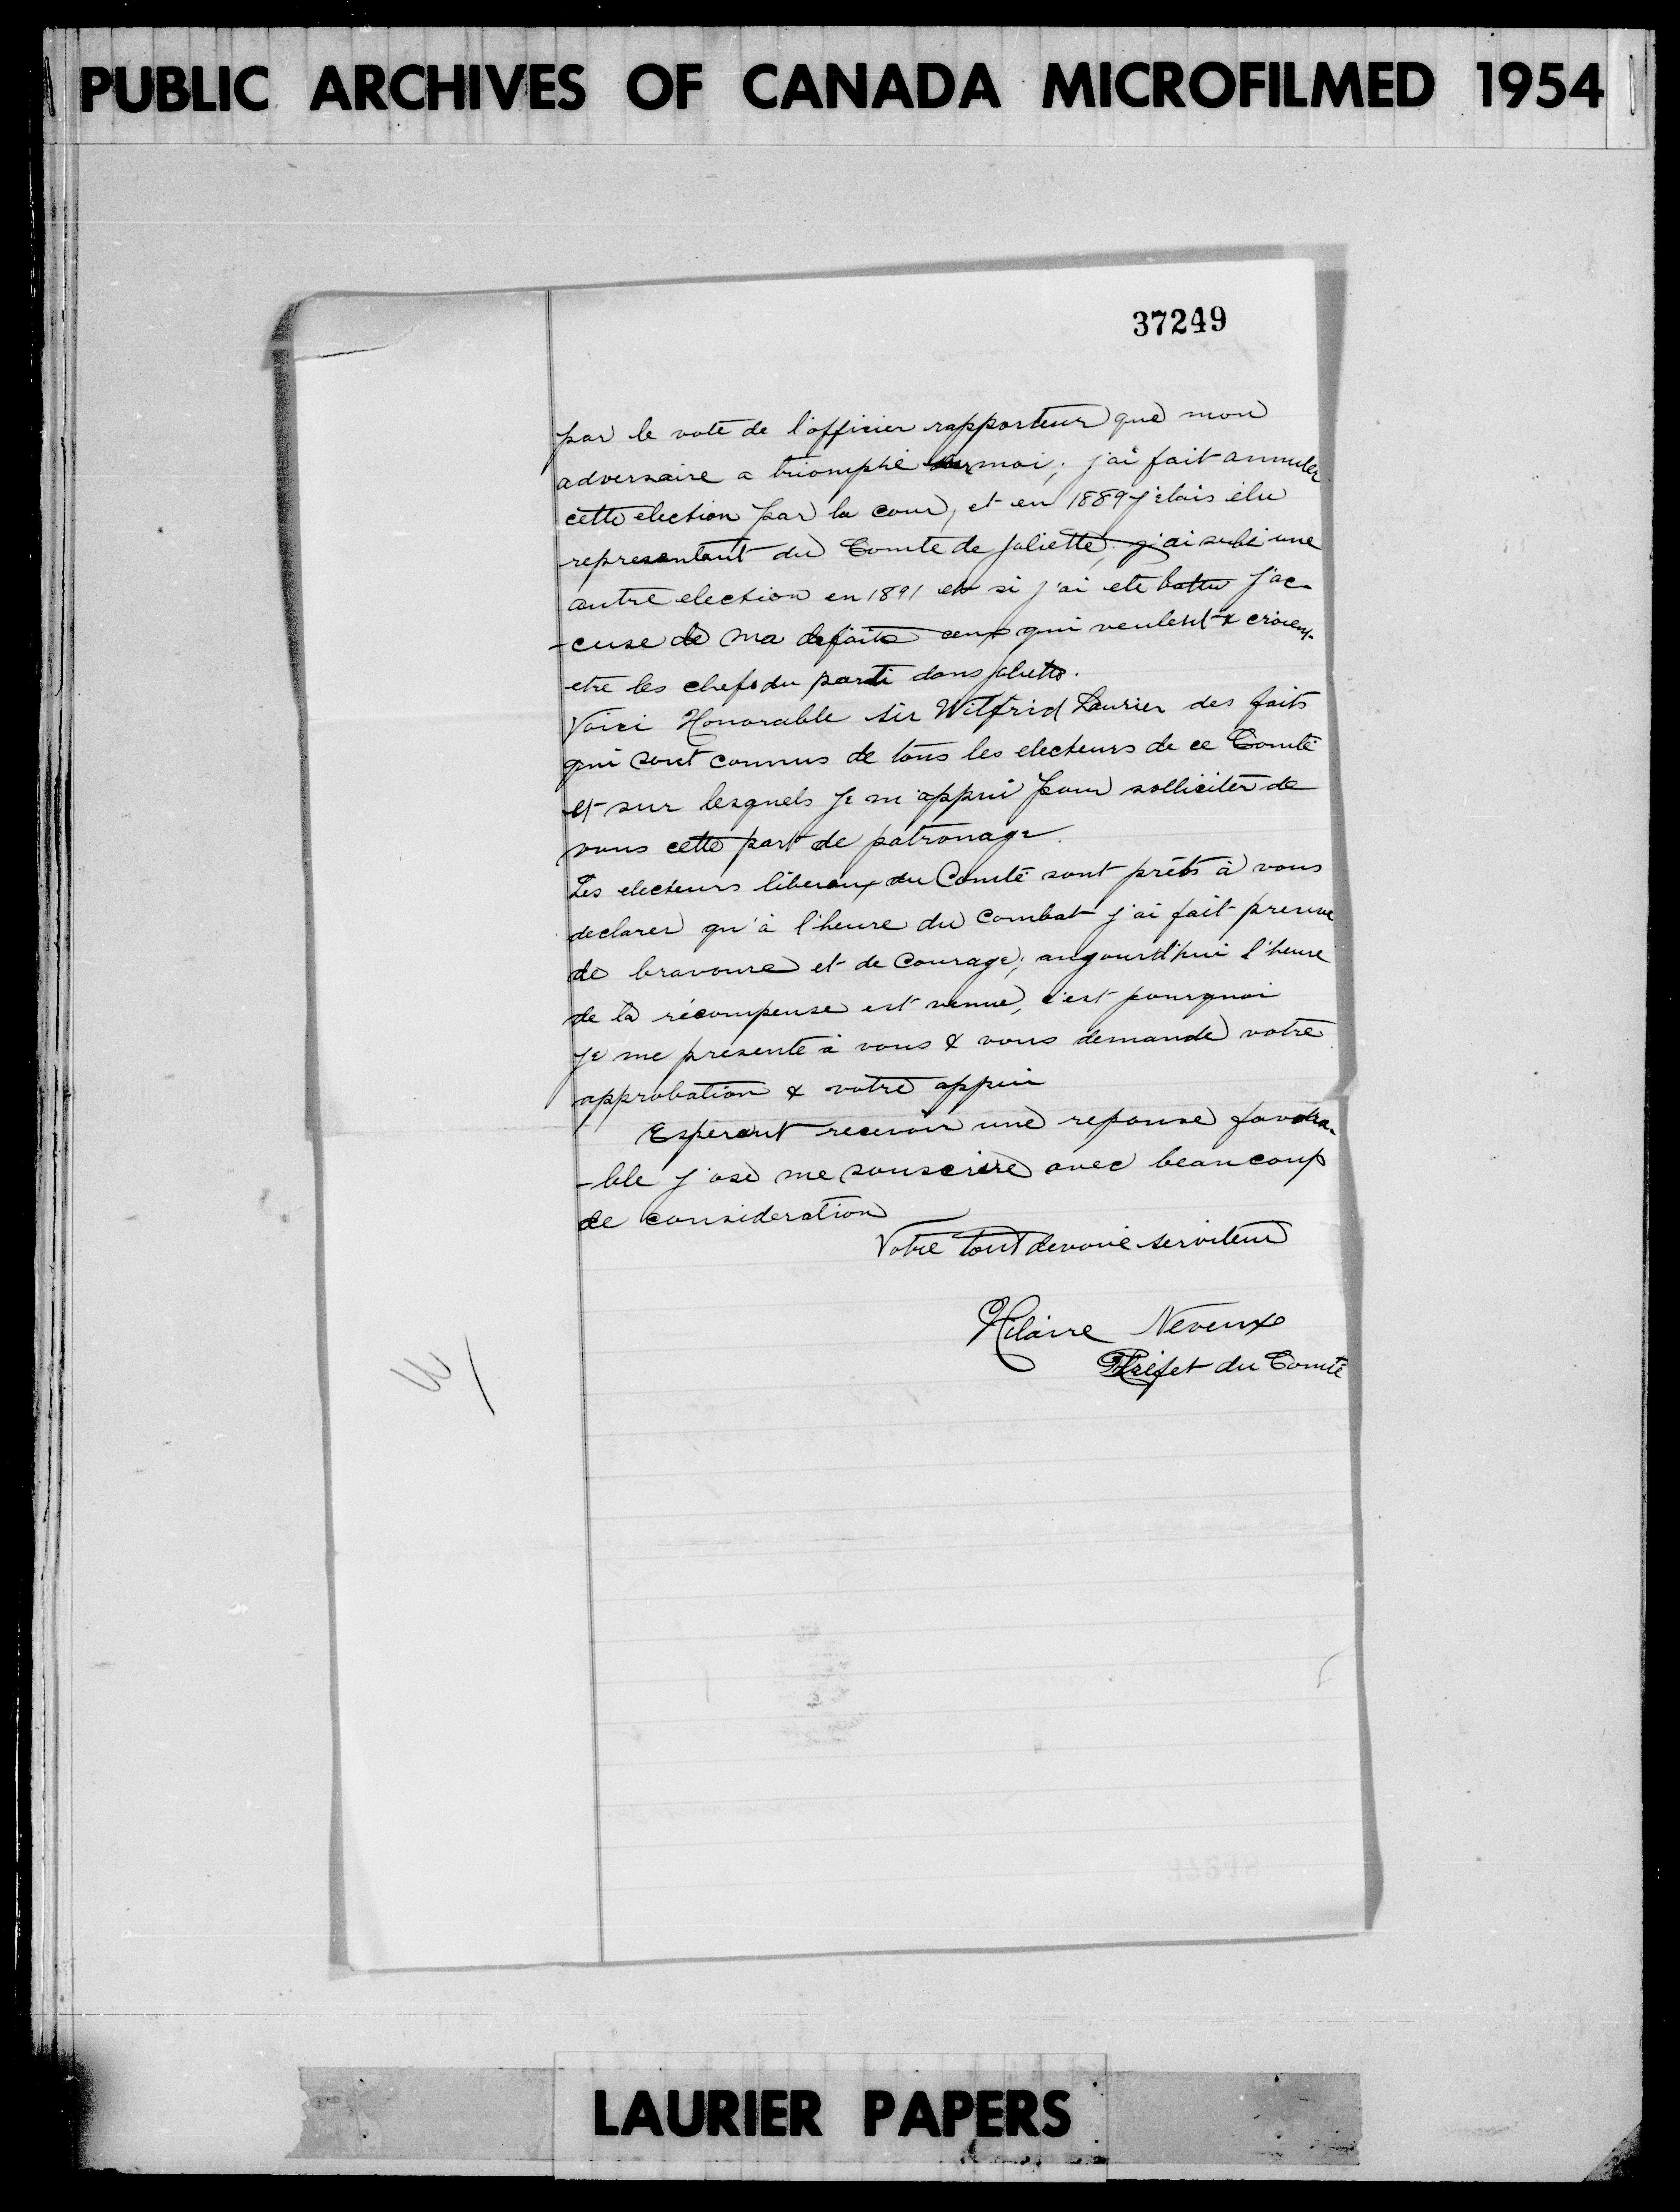 PUBLIC ARCHIVES OF CANADA MICROFILMED 1954
37249
par le vote de l'officier rapporteur que mon
adversaire a triomphé sur moi; j'ai fait annuler
cette election par la cour, et en 1889 j'etais élu
representant du Comte de Joliette; j'ai subi une
autre election en 1891 et si j'ai ete battu j'ac-
-cuse de ma defaite ceux qui veulent & croient
etre les chefs du parti dans Joliette.
Voici Honorable Sir Wilfrid Laurier des faits
qui sont connus de tous les electeurs de ce Comté
et sur lesquels je m'appui pour solliciter de
vous cette part de patronage.
Les electeurs liberaux du Comté sont prêts à vous
declarer qu'à l'heure du combat j'ai fait preuve
de bravoure et de courage; aujourd'hui l'heure
de la récompense est venue, c'est pourquoi
je me presente à vous & vous demande votre
approbation & votre appui
Esperant recevoir une reponse favora-
-ble j'ose me souscrire avec beaucoup
de consideration
Votre tout devoué serviteur
Hilaire Neveux
Préfet du Comté
LAURIER PAPERS